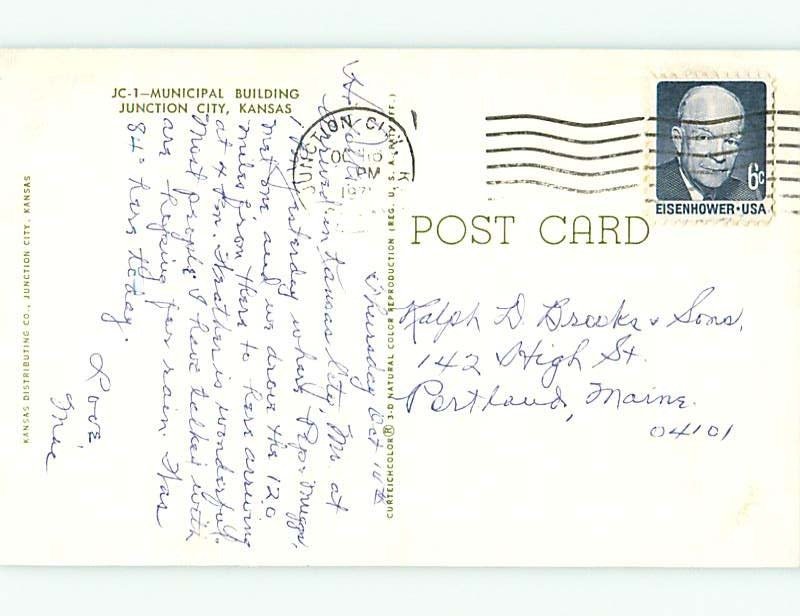 JC-1—MUNICIPAL BUILDING
JUNCTION CITY, KANSAS
KANSAS DISTRIBUTING CO., JUNCTION CITY, KANSAS
Thursday Oct 10th
Hi
Arrived in Kansas City, Mo. at
yesterday where
met me and we drove the 120
miles from there to here arriving
at 4 P.m. Weather is wonderful.
Most people I have talked with
are hoping for rain. Was
84° here today.
Love,
Mae
CURTEICHCOLOR® 3-D NATURAL COLOR REPRODUCTION (REG. U. S. A. PAT. OFF.)
JUNCTION CITY, K
OCT 10
PM
197
6c
EISENHOWER·USA
POST CARD
Ralph D. Brooks & Sons,
142 High St.
Portland, Maine
04101